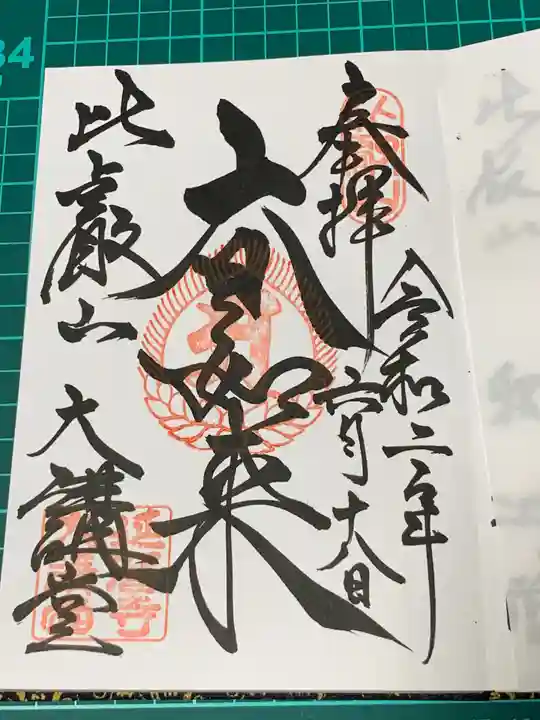 奉拝
令和二年
六月十八日
大日如来
比叡山
大講堂
34